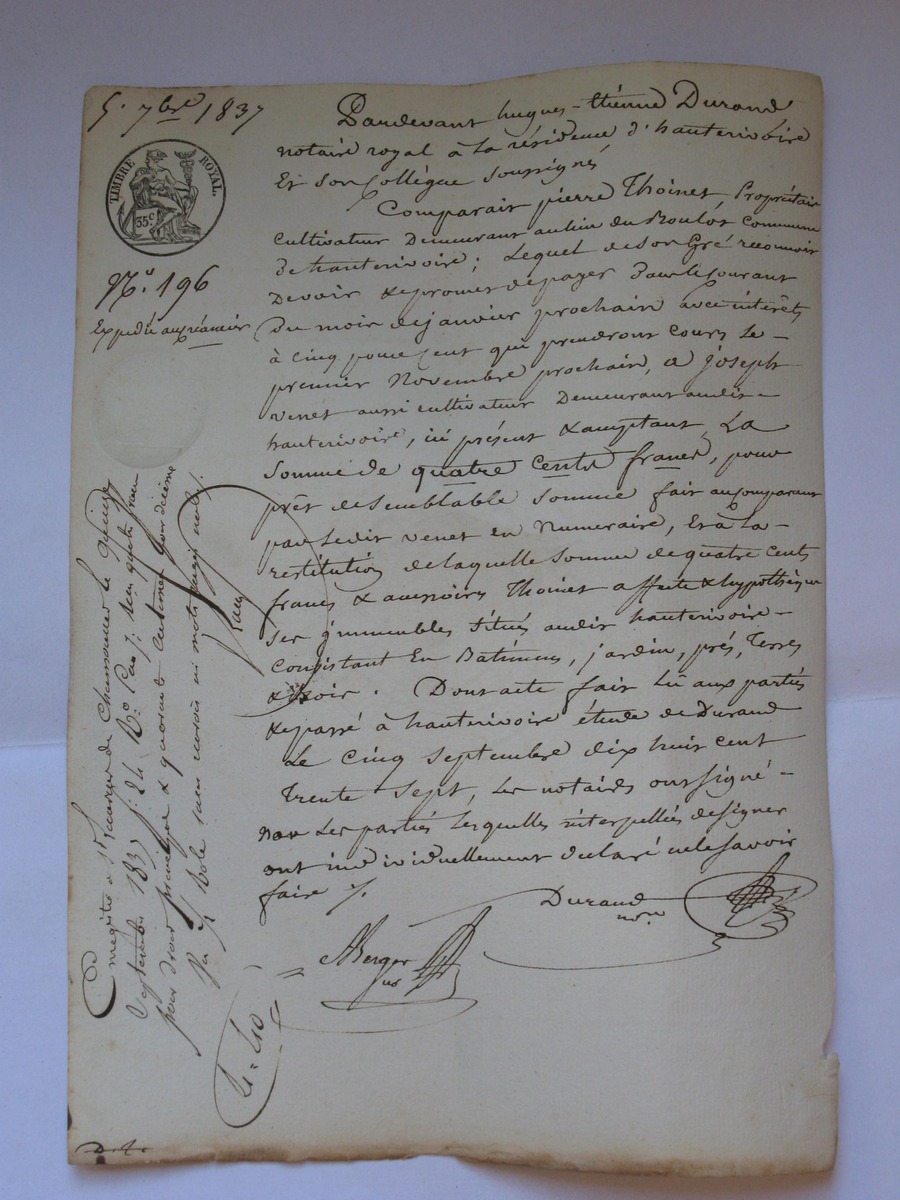 5. 7bre 1837
TIMBRE ROYAL.
35c
No. 196
Expédié au créancier
Pardevant hugues-étienne Durand
notaire royal à la résidence d'hauterivoire
Et son Collègue soussignés
Comparait pierre Thoinet, Propriétaire
cultivateur Demeurant au lieu du Boulot Commune
de hauterivoire; Lequel de son Gré reconnoit
Devoir & promet de payer dans le Courant
Du mois de janvier prochain avec intérêts
à cinq pour Cent qui prendront cours le-
premier Novembre prochain, a joseph
venet aussi cultivateur Demeurant audit-
hauterivoire, ici présent & acceptant, La
Somme de quatre cents francs, pour
prêt de semblable somme fait au comparant
par Ledit venet en Numéraire, Et à La-
restitution de laquelle somme de quatre cents
francs & accessoires Thoinet affecte & hypothèque
ses immeubles situés audit hauterivoire-
Consistant En Batimens, jardin, prés, Terres
& bois. Dont acte fait Lû aux parties
& passé à hauterivoire étude de Durand
Le cinq septembre dix huit cent
trente sept, Les notaires ont signé-
non Les parties Lesquelles interpellées de signer
ont individuellement déclaré ne le savoir
faire
Durand
nore
Berger
Enregistré à St Laurent de Chamousset le quinze
Septembre 1837 f. 24 Ro
pour droit principal & quarante centimes pour décime
sans renvoi ni mots rayés nuls